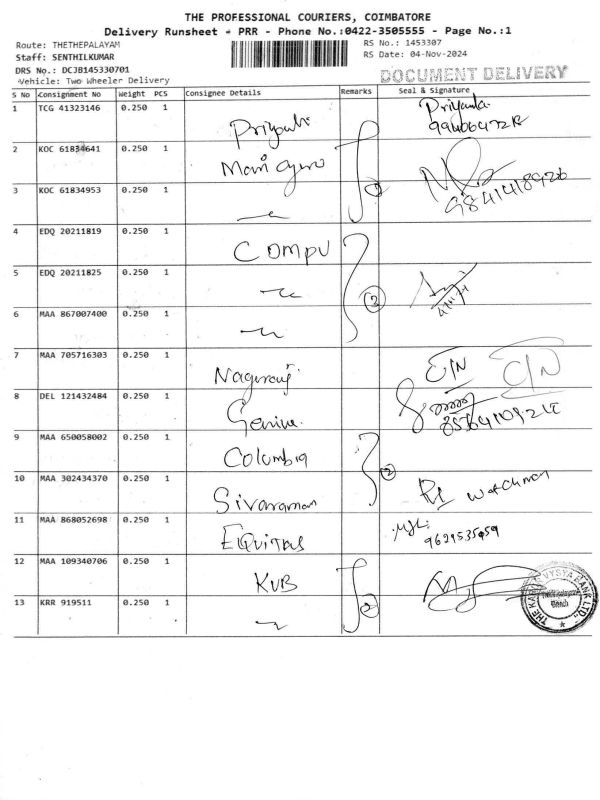 THE PROFESSIONAL COURIERS, COIMBATORE
Delivery Runsheet - PRR - Phone No.:0422-3505555 - Page No.:1
Route: THETHEPALAYAM
RS No.: 1453307
Staff: SENTHILKUMAR
RS Date: 04-Nov-2024
DRS No.: DCJB145330701
Vehicle: Two Wheeler Delivery
DOCUMENT DELIVERY
S No Consignment No Weight PCS Consignee Details Remarks Seal & Signature
1 TCG 41323146 0.250 1 Priyanka Priyanka
2 KOC 61834641 0.250 1 Mani
3 KOC 61834953 0.250 1 9841418926
4 EDQ 20211819 0.250 1 COMPU
5 EDQ 20211825 0.250 1
6 MAA 867007400 0.250 1
7 MAA 705716303 0.250 1 Nagaraj C/N C/N
8 DEL 121432484 0.250 1 Genius
9 MAA 650058002 0.250 1 Columbia
10 MAA 302434370 0.250 1 Sivaraman watchman
11 MAA 868052698 0.250 1 EQUITAS 9629535959
12 MAA 109340706 0.250 1 KVB
13 KRR 919511 0.250 1
THE KARUR VYSYA BANK LTD.
Branch